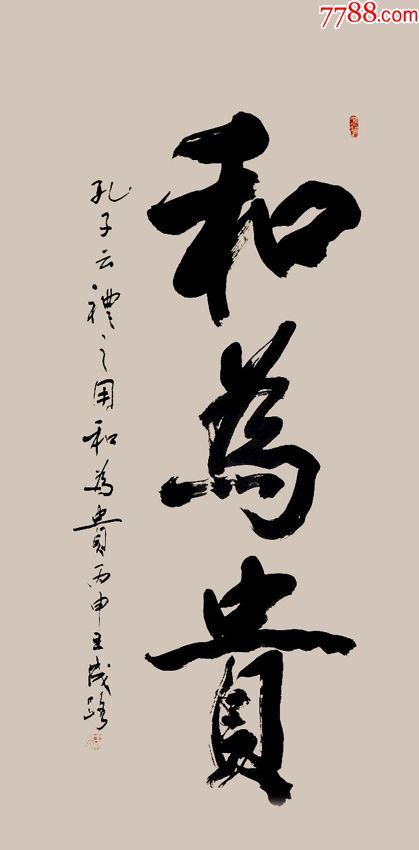 7788.com
和為貴
孔子云禮之用和為貴丙申王成路